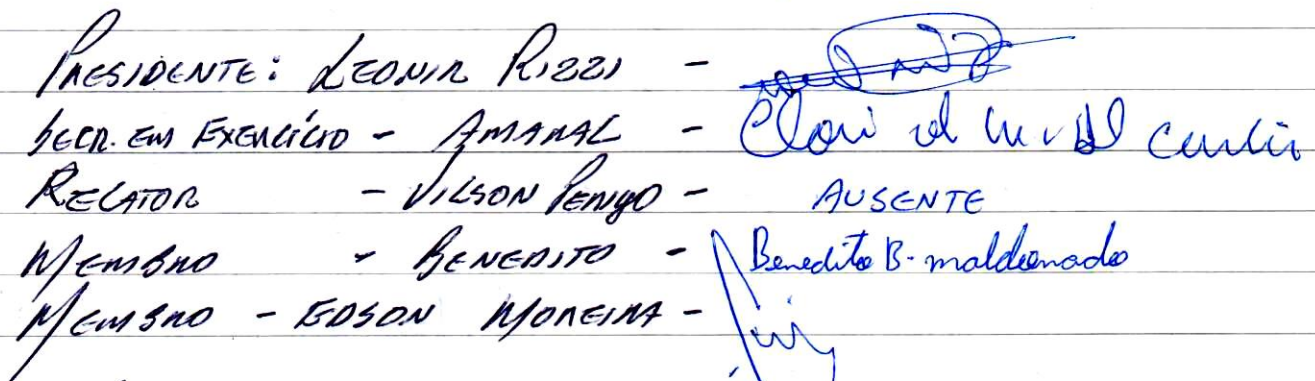 PRESIDENTE: LEONIR RIZZI -
SECR. EM EXERCÍCIO - AMARAL -
RELATOR - VILSON PERIGO - AUSENTE
MEMBRO - BENEDITO - Benedito B. maldonado
MEMBRO - EDSON MOREIRA -